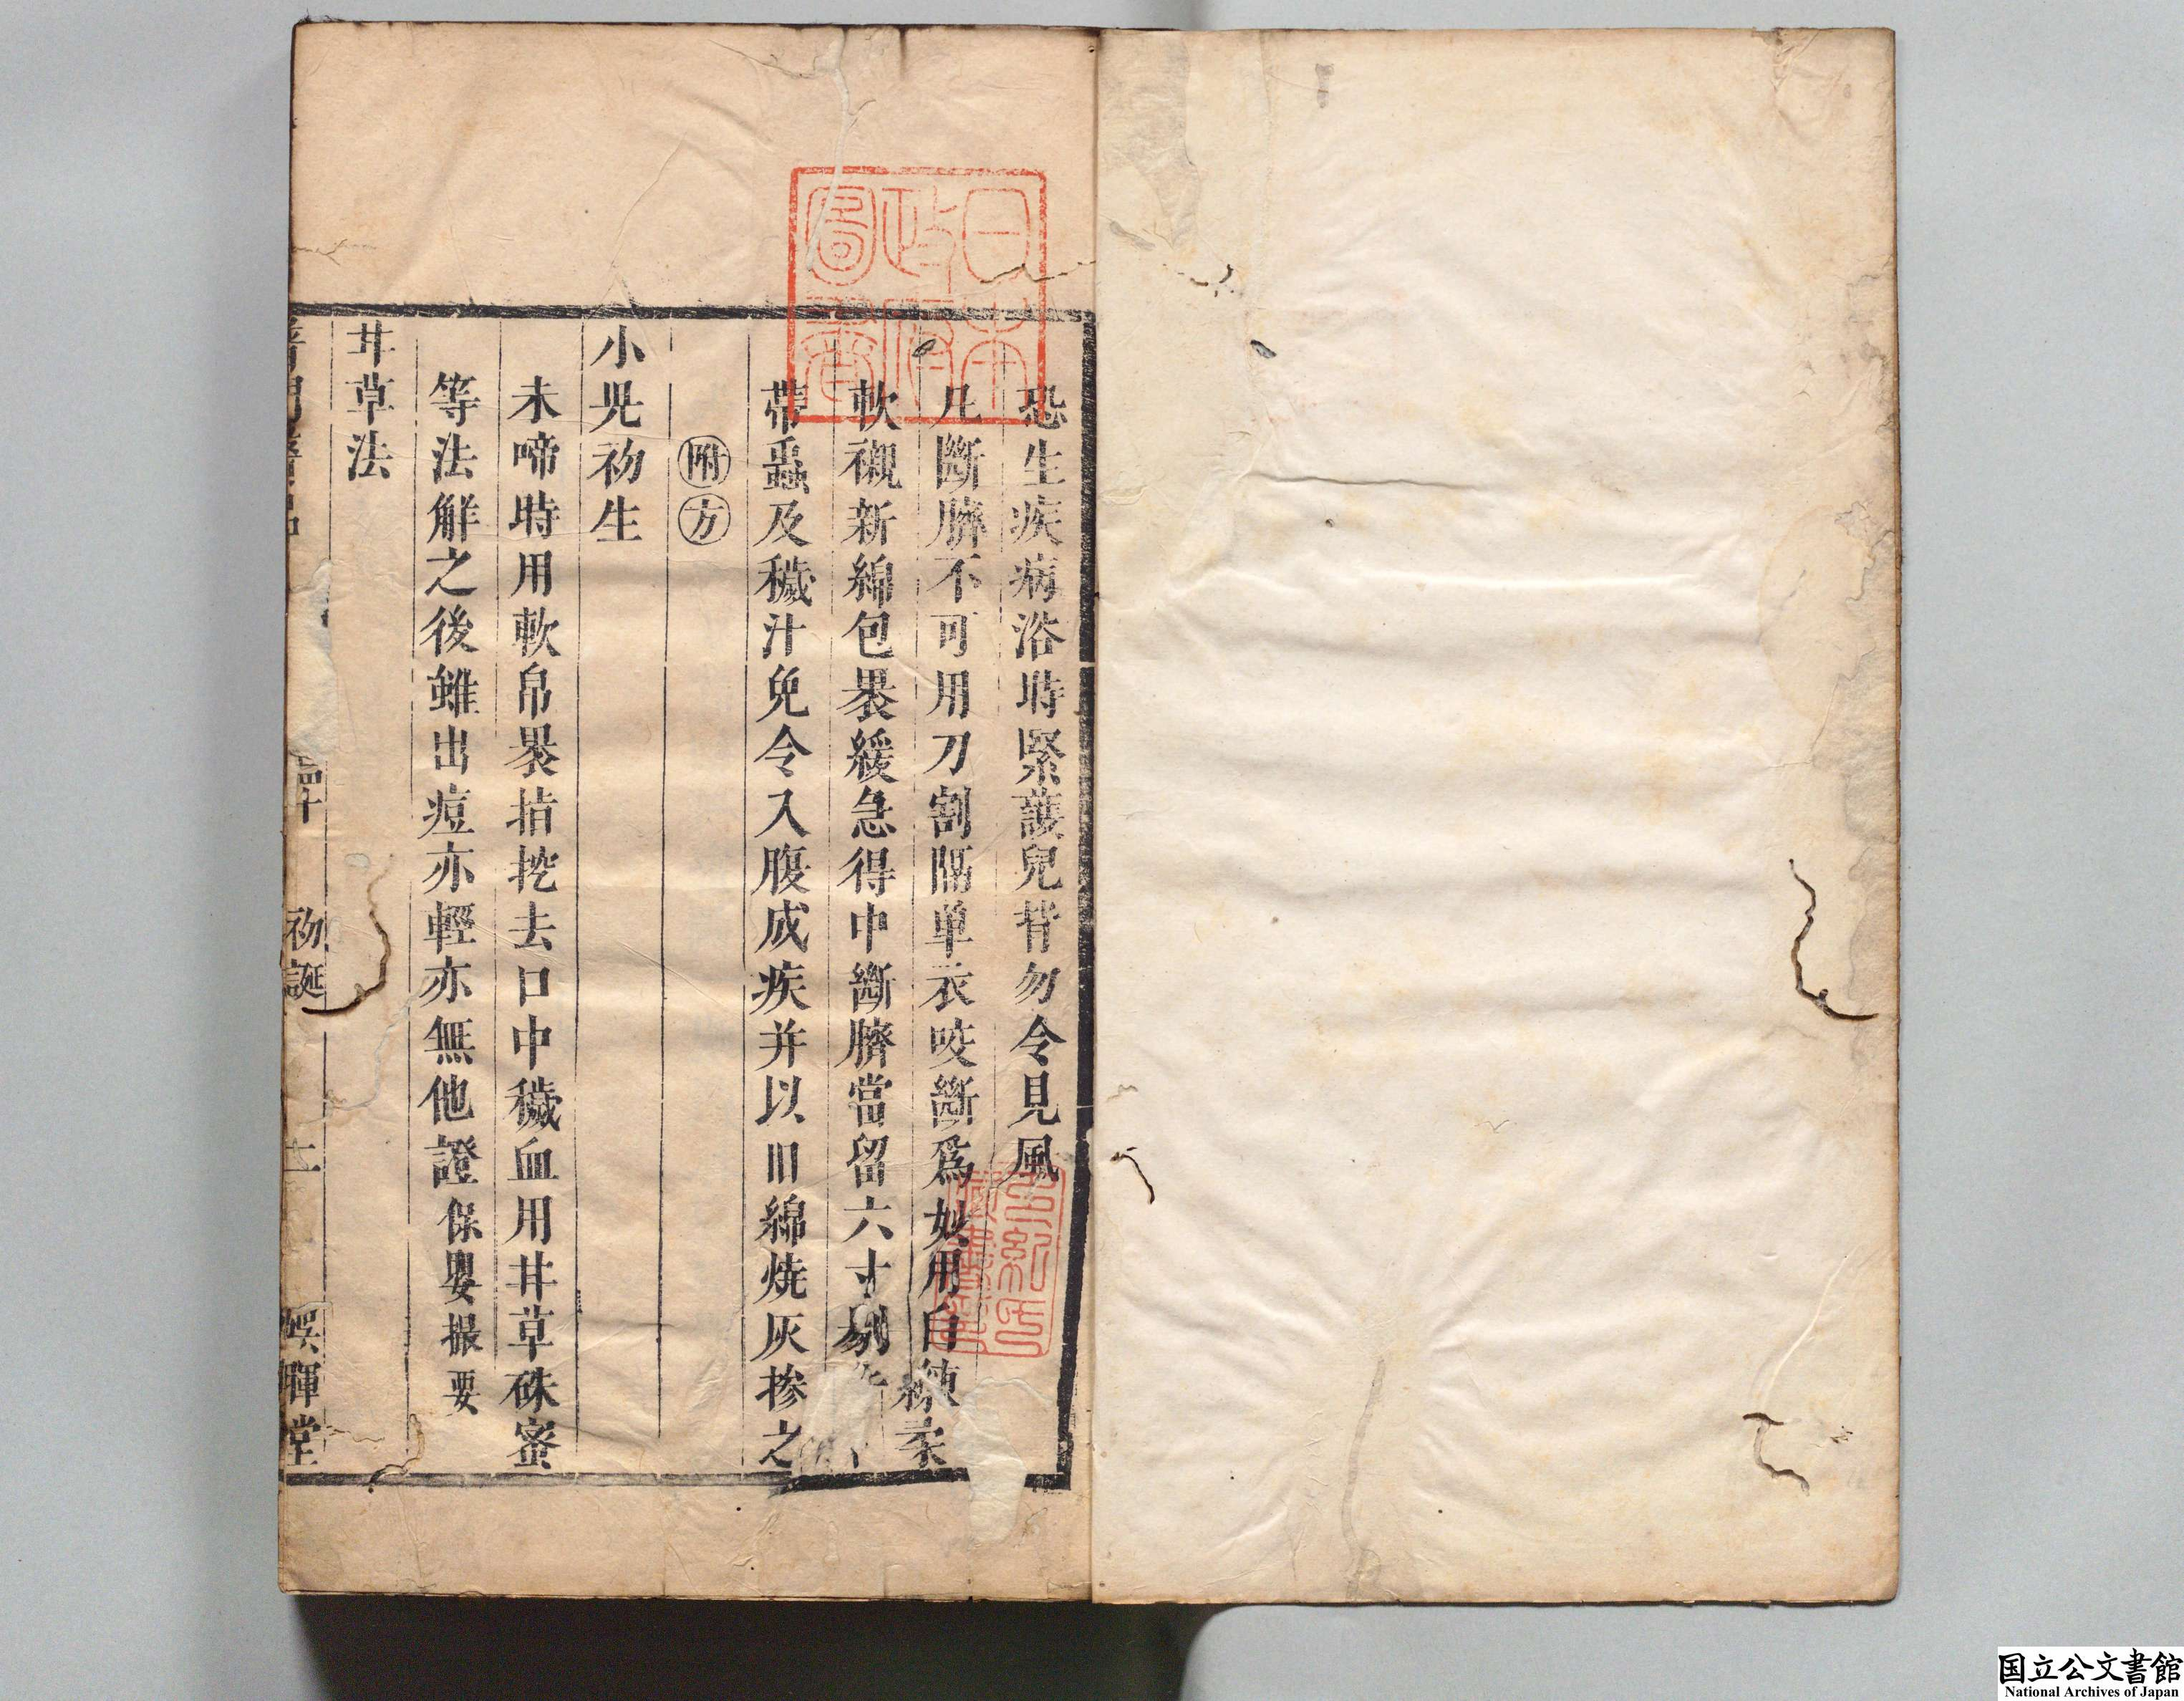 恐生疾病浴時緊護兒背勿令見風
凡斷臍不可用刀割隔单衣咬斷爲妙用白練柔
軟襯新綿包裹緩急得中斷臍當留六寸剔
帶蟲及穢汁免令入腹成疾并以旧綿焼灰掺之
附方
小児初生
未啼時用軟帛裹指挖去口中穢血用甘草硃蜜
等法解之後雖出痘亦輕亦無他證保嬰撮要
甘草法
四十 初誕 二 娛暉堂
日本政府圖書
国立公文書館
National Archives of Japan